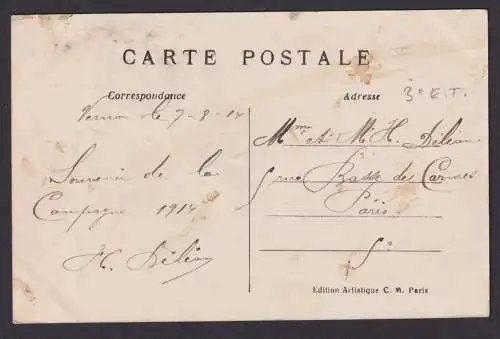 CARTE POSTALE
Correspondance
Vernon le 7-8-14
Souvenir de la
Campagne 1914
H. Déléan
Adresse
3e E.T.
Mme et Mr H. Déléan
5 rue Basse des Carmes
Paris
5e
Edition Artistique C. M. Paris